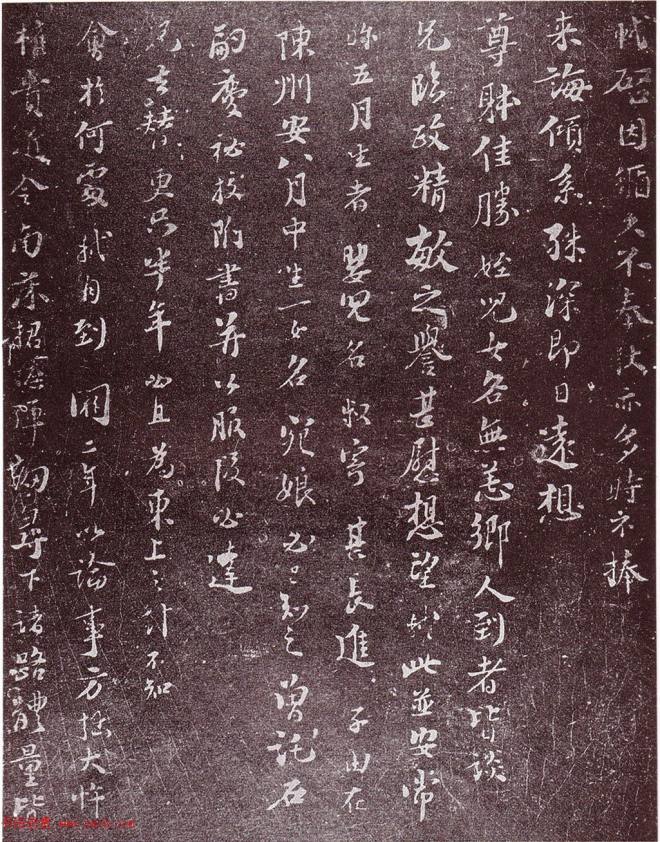 軾啓因循久不奉狀亦多時不捧
来誨傾系殊深即日遠想
尊體佳勝姪兒女各無恙鄉人到者皆談
兄臨政精敏之譽甚慰想望軾此並安常
五月生者嬰兒名叔寄甚長進子由在
陳州安八月中生一女名宛娘必已知之曾託石
嗣慶祕校附書并以服段必達
兄去替更只半年必且為東上之計不知
會於何處軾自到闕二年以論事方拙大忤
權貴近令南床捃摭彈劾尋下諸路體量皆